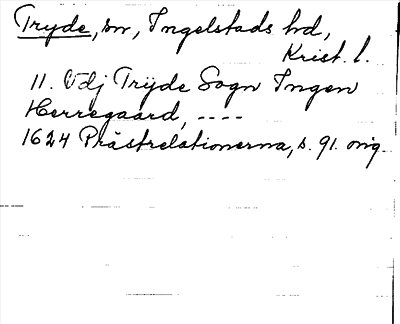 Tryde, sn, Ingelstads hd,
Krist. l.
11. Vdj Trÿde Sogn Ingen
Herregaard, ----
1624 Prästrelationerna, s. 91. orig.